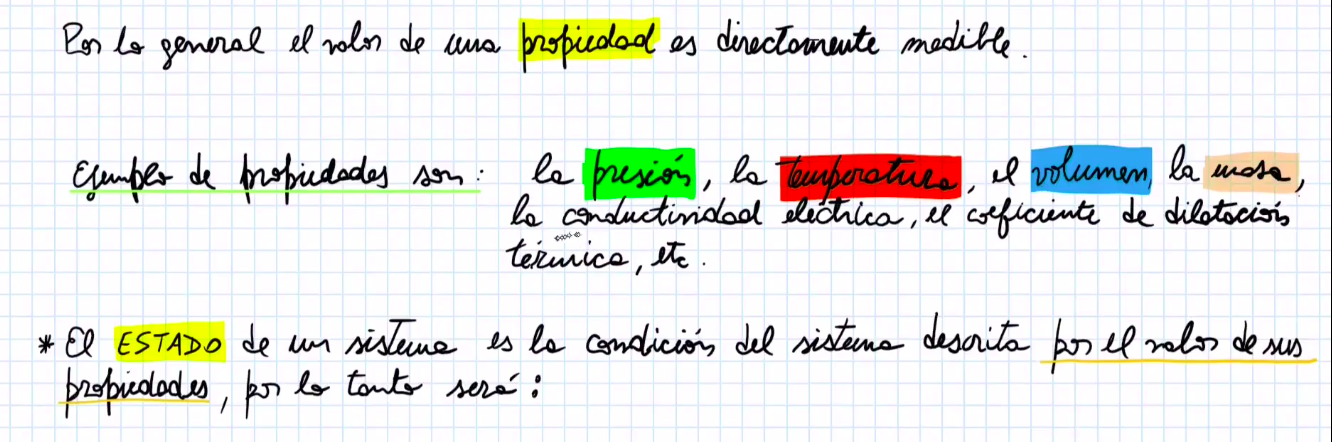 Por lo general el valor de una propiedad es directamente medible.
Ejemplo de propiedades son: la presión, la temperatura, el volumen, la masa,
la conductividad eléctrica, el coeficiente de dilatación
térmica, etc.
* El ESTADO de un sistema es la condición del sistema descrita por el valor de sus
propiedades, por lo tanto será: